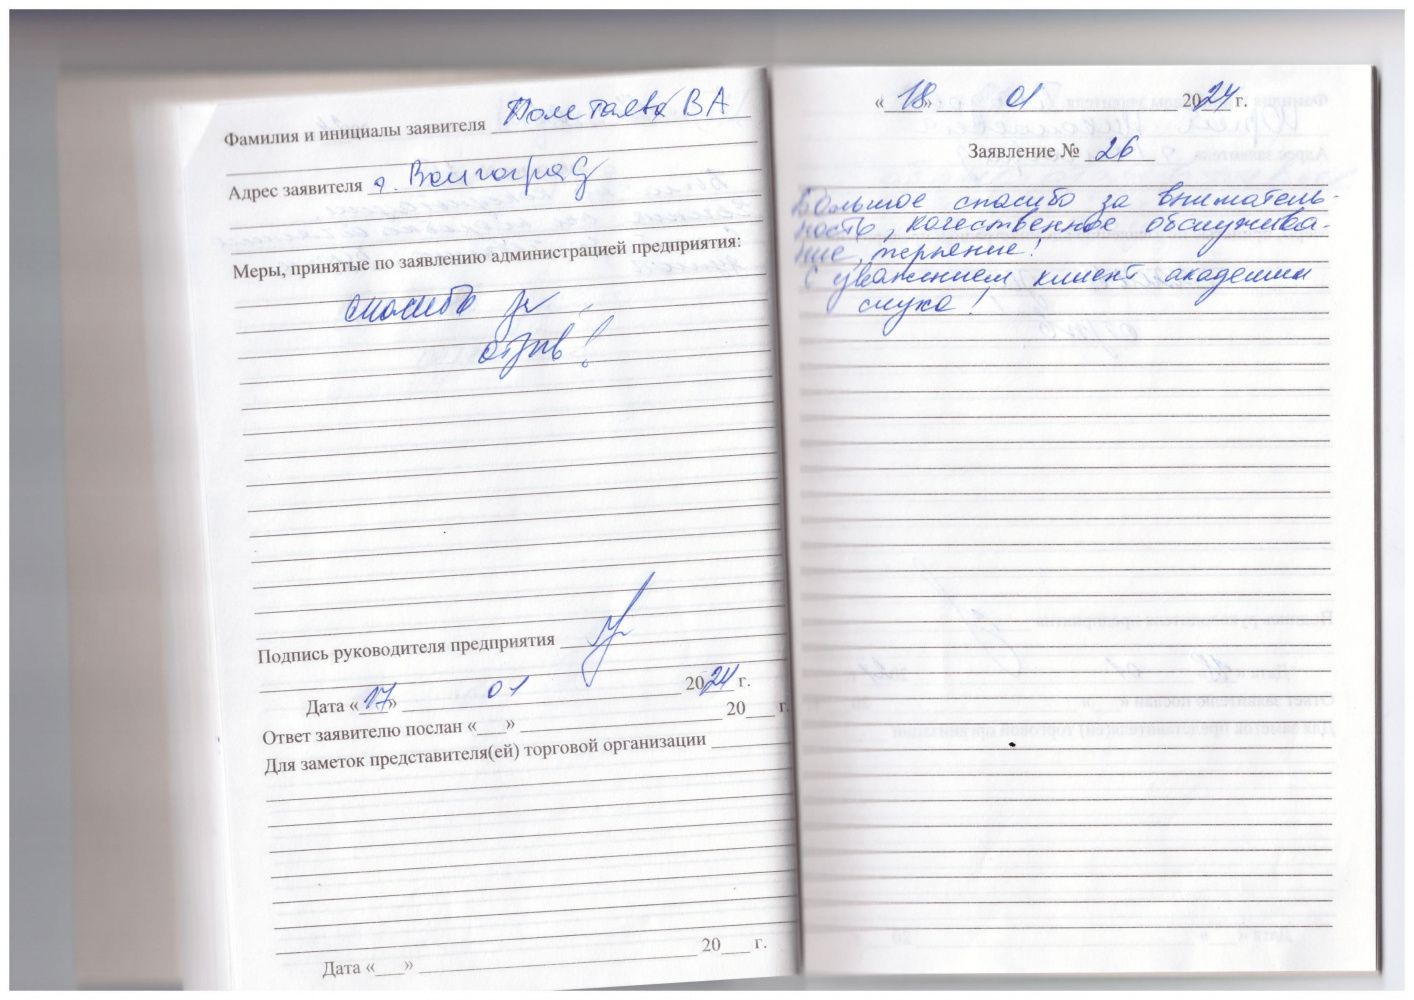 Фамилия и инициалы заявителя Полетаева ВА
Адрес заявителя г. Волгоград
Меры, принятые по заявлению администрацией предприятия:
спасибо за
отзыв!
Подпись руководителя предприятия
Дата «17» 01 2024 г.
Ответ заявителю послан «___» 20___ г.
Для заметок представителя(ей) торговой организации
Дата «___» 20___ г.
«18» 01 2024 г.
Заявление № 26
Большое спасибо за вниматель-
ность, качественное обслужива-
ние, терпение!
С уважением клиент академии
слуха!